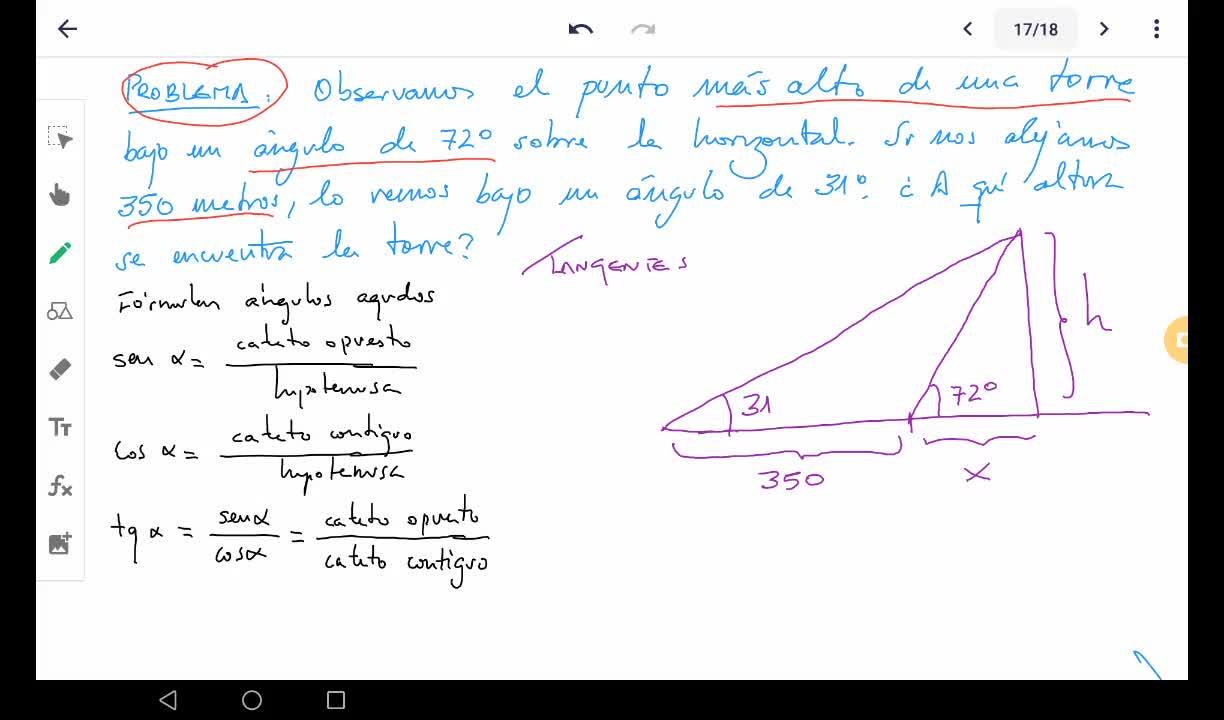 17/18
PROBLEMA: Observamos el punto más alto de una torre
bajo un ángulo de 72º sobre la horizontal. Si nos alejamos
350 metros, lo vemos bajo un ángulo de 31º. ¿A qué altura
se encuentra la torre?
TANGENTES
Fórmulas ángulos agudos
sen α = cateto opuesto / hipotenusa
cos α = cateto contiguo / hipotenusa
tg α = sen α / cos α = cateto opuesto / cateto contiguo
h
31
72º
350
x
Tт
fx